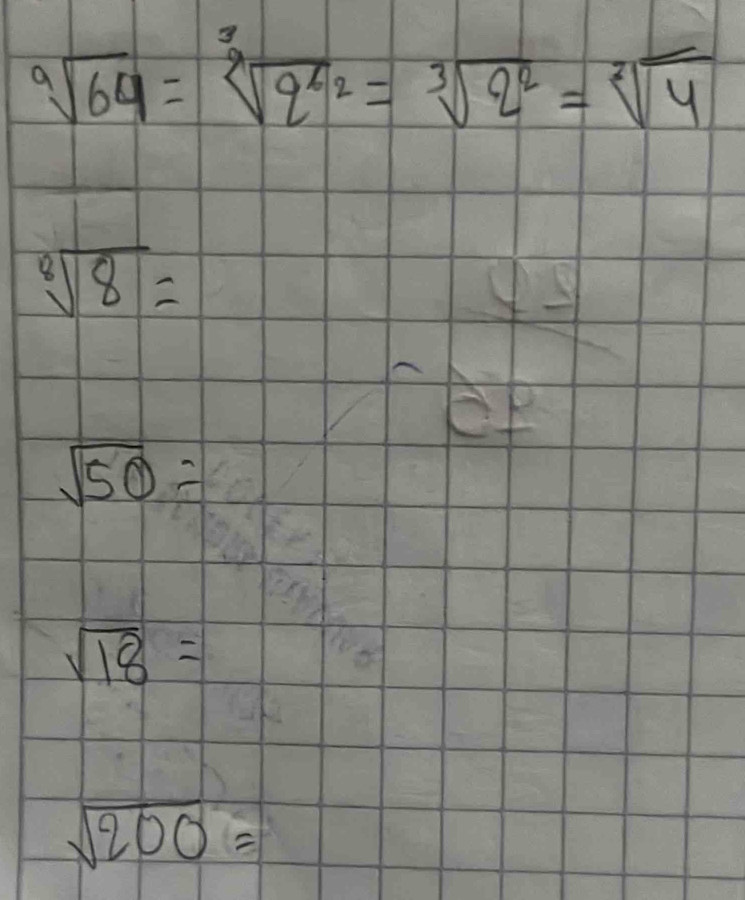 ⁹√64 = ⁹√2⁶ = ³√2² = ³√4
⁸√8 =
√50 =
√18 =
√200 =